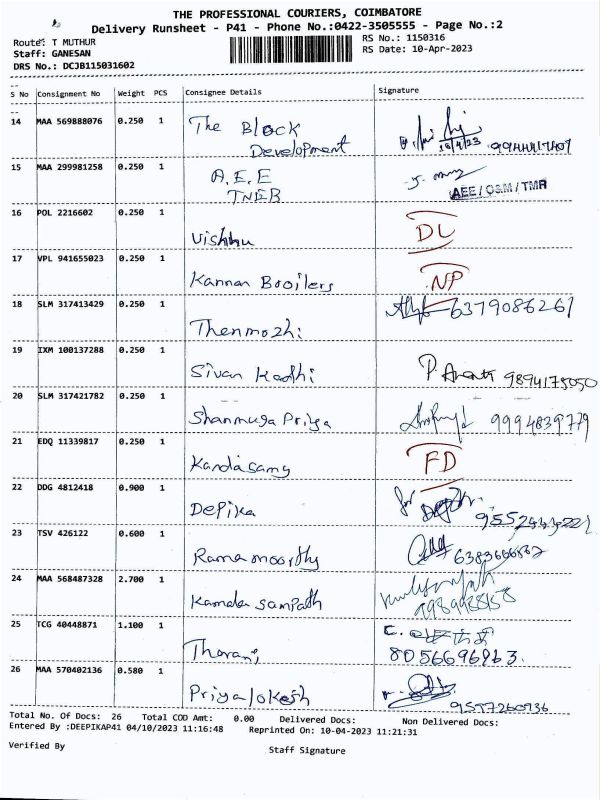 THE PROFESSIONAL COURIERS, COIMBATORE
Delivery Runsheet - P41 - Phone No.:0422-3505555 - Page No.:2
Route: T MUTHUR
RS No.: 1150316
Staff: GANESAN
RS Date: 10-Apr-2023
DRS No.: DCJB115031602
S No Consignment No Weight PCS Consignee Details Signature
14 MAA 569888076 0.250 1 The Block
Development
15 MAA 299981258 0.250 1 A.E.E
TNEB
AEE/O&M/TMR
16 POL 2216602 0.250 1 Vishnu DL
17 VPL 941655023 0.250 1 Kannan Booilers NP
18 SLM 317413429 0.250 1 Thenmozhi 6379086261
19 IXM 100137288 0.250 1 Sivan Kadhi 9894175050
20 SLM 317421782 0.250 1 Shanmuga Priya 9994839779
21 EDQ 11339817 0.250 1 Kandasamy FD
22 DDG 4812418 0.900 1 Depika
23 TSV 426122 0.600 1 Ramamoorthy
24 MAA 568487328 2.700 1 Kamala Sampath
25 TCG 40448871 1.100 1 Tharani 8056696963.
26 MAA 570402136 0.580 1 Priyalokesh
Total No. Of Docs: 26 Total COD Amt: 0.00 Delivered Docs: Non Delivered Docs:
Entered By :DEEPIKAP41 04/10/2023 11:16:48 Reprinted On: 10-04-2023 11:21:31
Verified By
Staff Signature